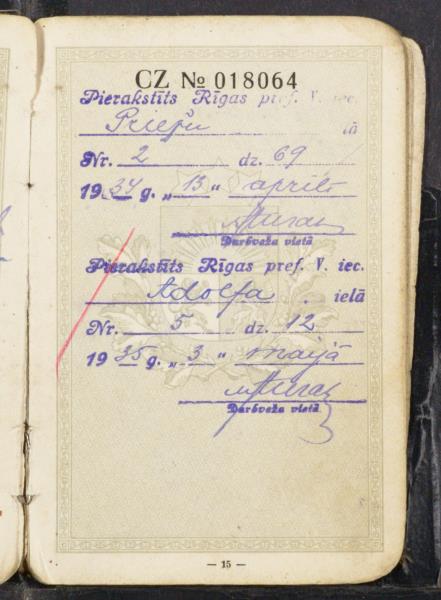 CZ № 018064
Pierakstīts Rīgas pref. V. iec.
Priežu ielā
Nr. 2 dz. 69
1934 g. „13" aprīlī
Darbveža vietā
Pierakstīts Rīgas pref. V. iec.
Adolfa ielā
Nr. 5 dz. 12
1935 g. „3" maijā
Darbveža vietā
— 15 —